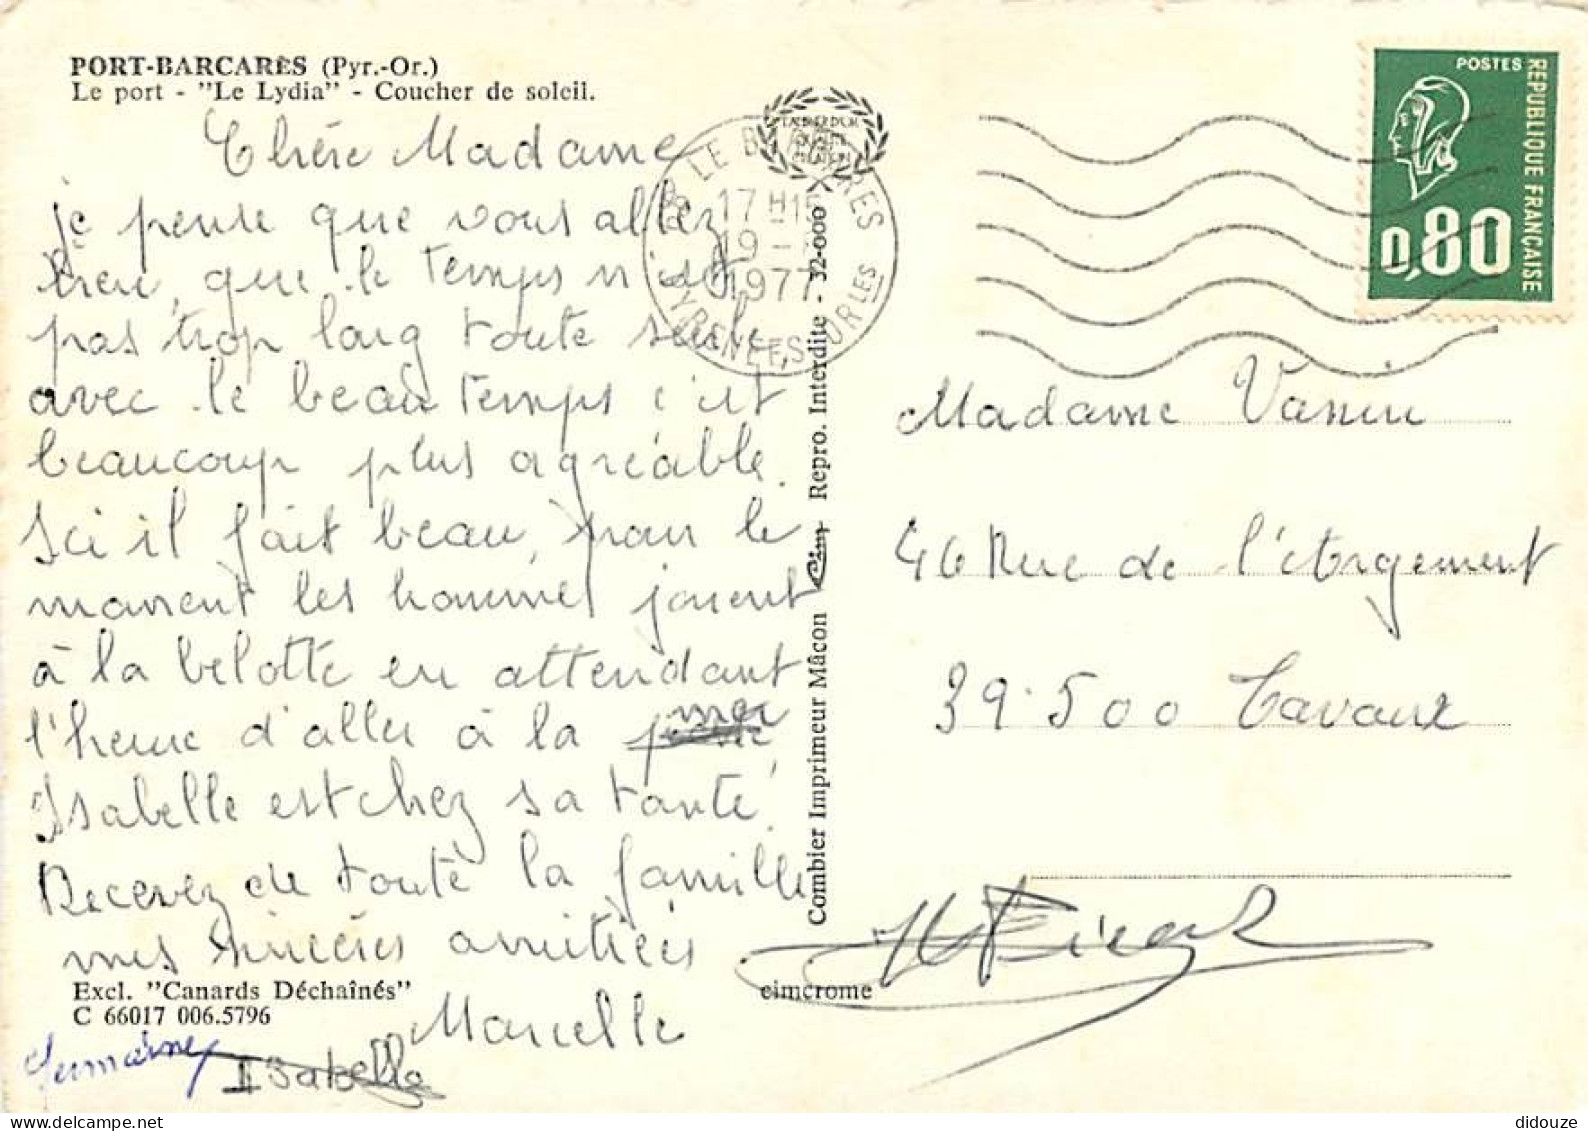 PORT-BARCARÈS (Pyr.-Or.)
Le port - "Le Lydia" - Coucher de soleil.
Chére Madame
je pense que vous allez
bien, que le temps n'est
pas trop long toute seule,
avec le beau temps c'est
beaucoup plus agréable.
Ici il fait beau, pour le
moment les hommes jouent
à la belotte en attendant
l'heure d'aller à la mer
Isabelle est chez sa tante.
Recevez de toute la famille
mes sincéres amitiées
Marcelle
Isabelle
Excl. "Canards Déchaînés"
C 66017 006.5796
LE BARCARES
17 H15
19 -
1977
PYRENEES ORLES
Combier Imprimeur Mâcon Cim Repro. Interdite - 32-000
cimcrome
POSTES
REPUBLIQUE FRANÇAISE
0,80
Madame Vanin
46 Rue de l'Argement
39.500 Tavaux
didouze